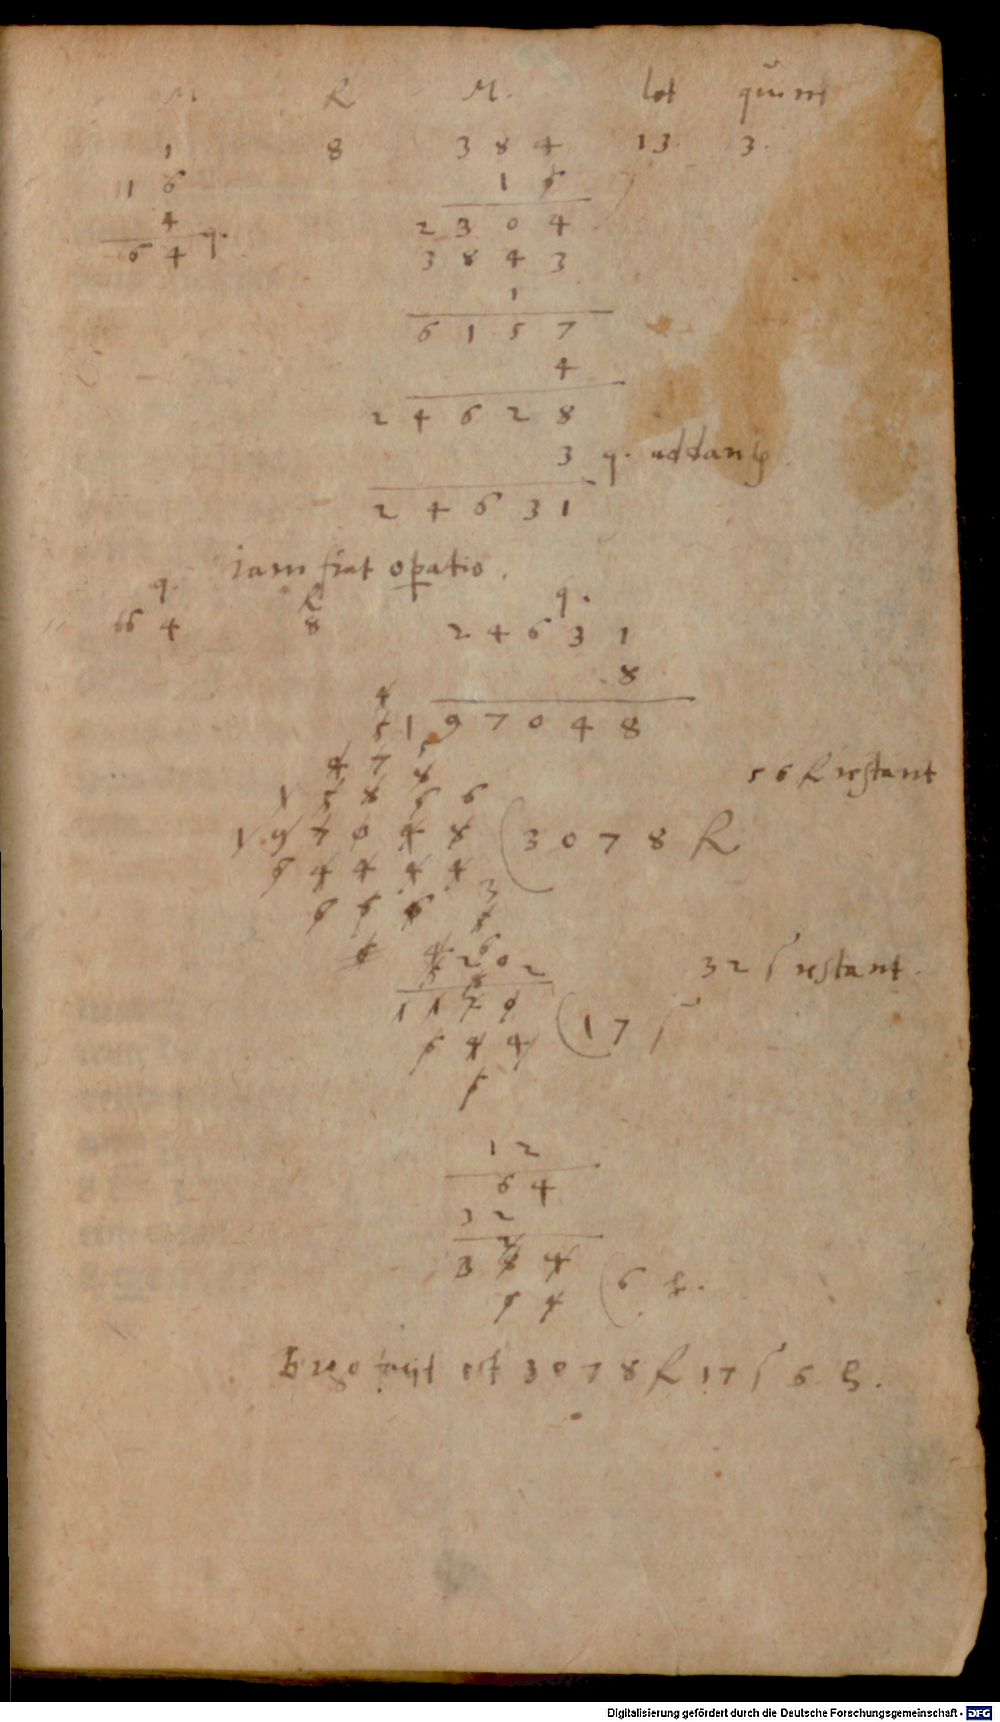 M R M. lot quint
1 8 3 8 4 13 3.
11 6 1 6
4 2 3 0 4
6 4 q. 3 8 4 3
1
6 1 5 7
4
2 4 6 2 8
3 q. addantur
2 4 6 3 1
iam fiat opatio.
q. R q.
6 4 8 2 4 6 3 1
8
4
5 1 9 7 0 4 8
4 7 5
56 R restant
1 5 8 6 6
1 9 7 0 4 8 (3 0 7 8 R
6 4 4 4 4
6 6 6
32 ſ restant.
1 1 7 0 (1 7 ſ
6 4 4
6
1 2
6 4
3 2
3 8 4 (6
6 4
Ergo facit est 3 0 7 8 R 17 ſ 6
Digitalisierung gefördert durch die Deutsche Forschungsgemeinschaft - DFG